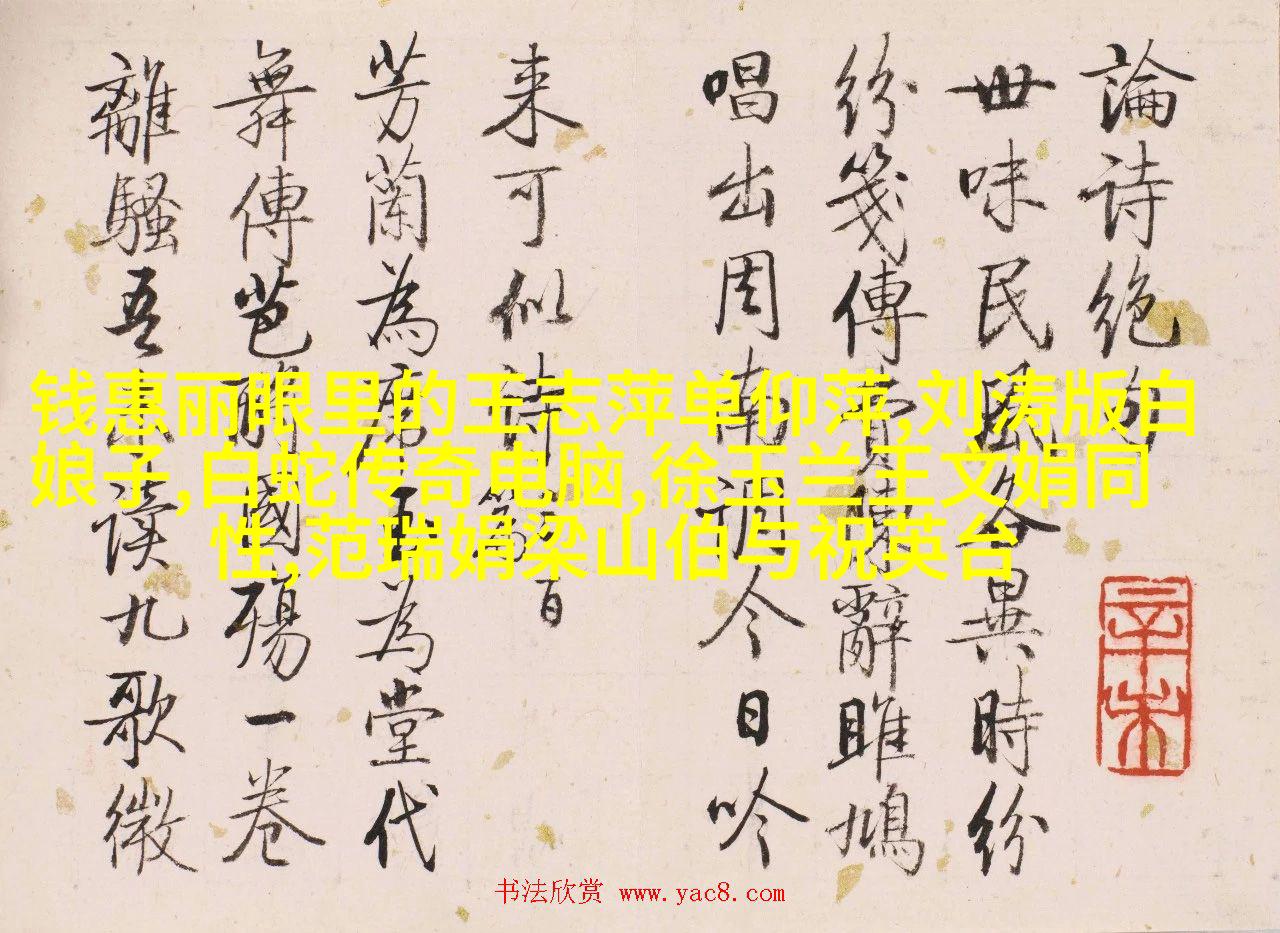 論詩絶句
世味民風各異時紛
紛箋傳陳辭雎鳩
唱出周南調今日吟
来可似詩
芳蘭為席玉為堂代
舞傳芭酹國殤一卷
離騷吾讀九歌微
钱惠丽眼里的王志萍单仰萍,刘涛版白
娘子,白蛇传奇电脑,徐玉兰王文娟同
性,范瑞娟梁山伯与祝英台
辛未
书法欣赏 www.yac8.com